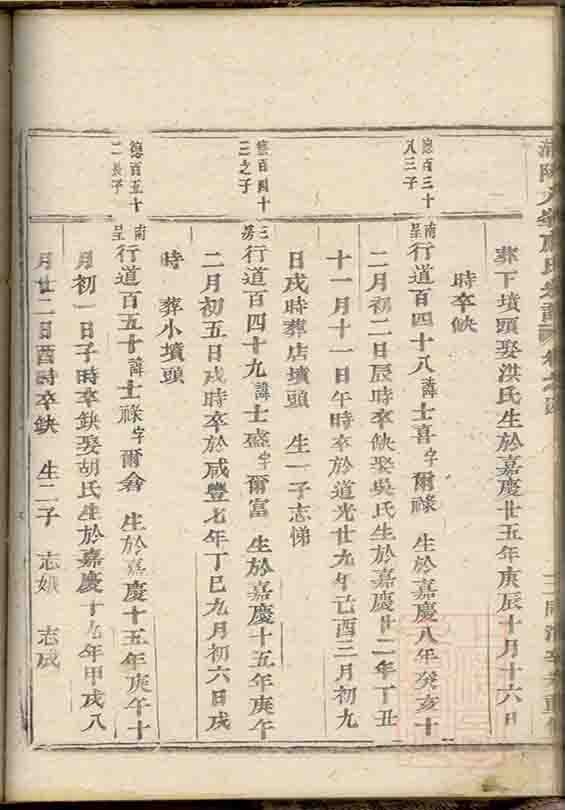 葬下墳頭娶洪氏生於嘉慶廿五年庚辰十月十六日
時卒缺
德百三十
八三子
南呈行道百四十八諱士喜字爾祿　生於嘉慶八年癸亥十
二月初二日辰時卒缺娶吳氏生於嘉慶廿二年丁丑
十一月十一日午時卒於道光廿九年己酉三月初九
日戌時葬店墳頭　生一子志悌
德百四十
二之子
三房行道百四十九諱士盛字爾富　生於嘉慶十五年庚午
二月初五日戌時卒於咸豐七年丁巳九月初六日戌
時　葬小墳頭
德百五十
二長子
南呈行道百五十諱士祿字爾　生於嘉慶十五年庚午十
月初一日子時卒缺娶胡氏生於嘉慶十九年甲戌八
月廿二日酉時卒缺　生二子　志娥　志成